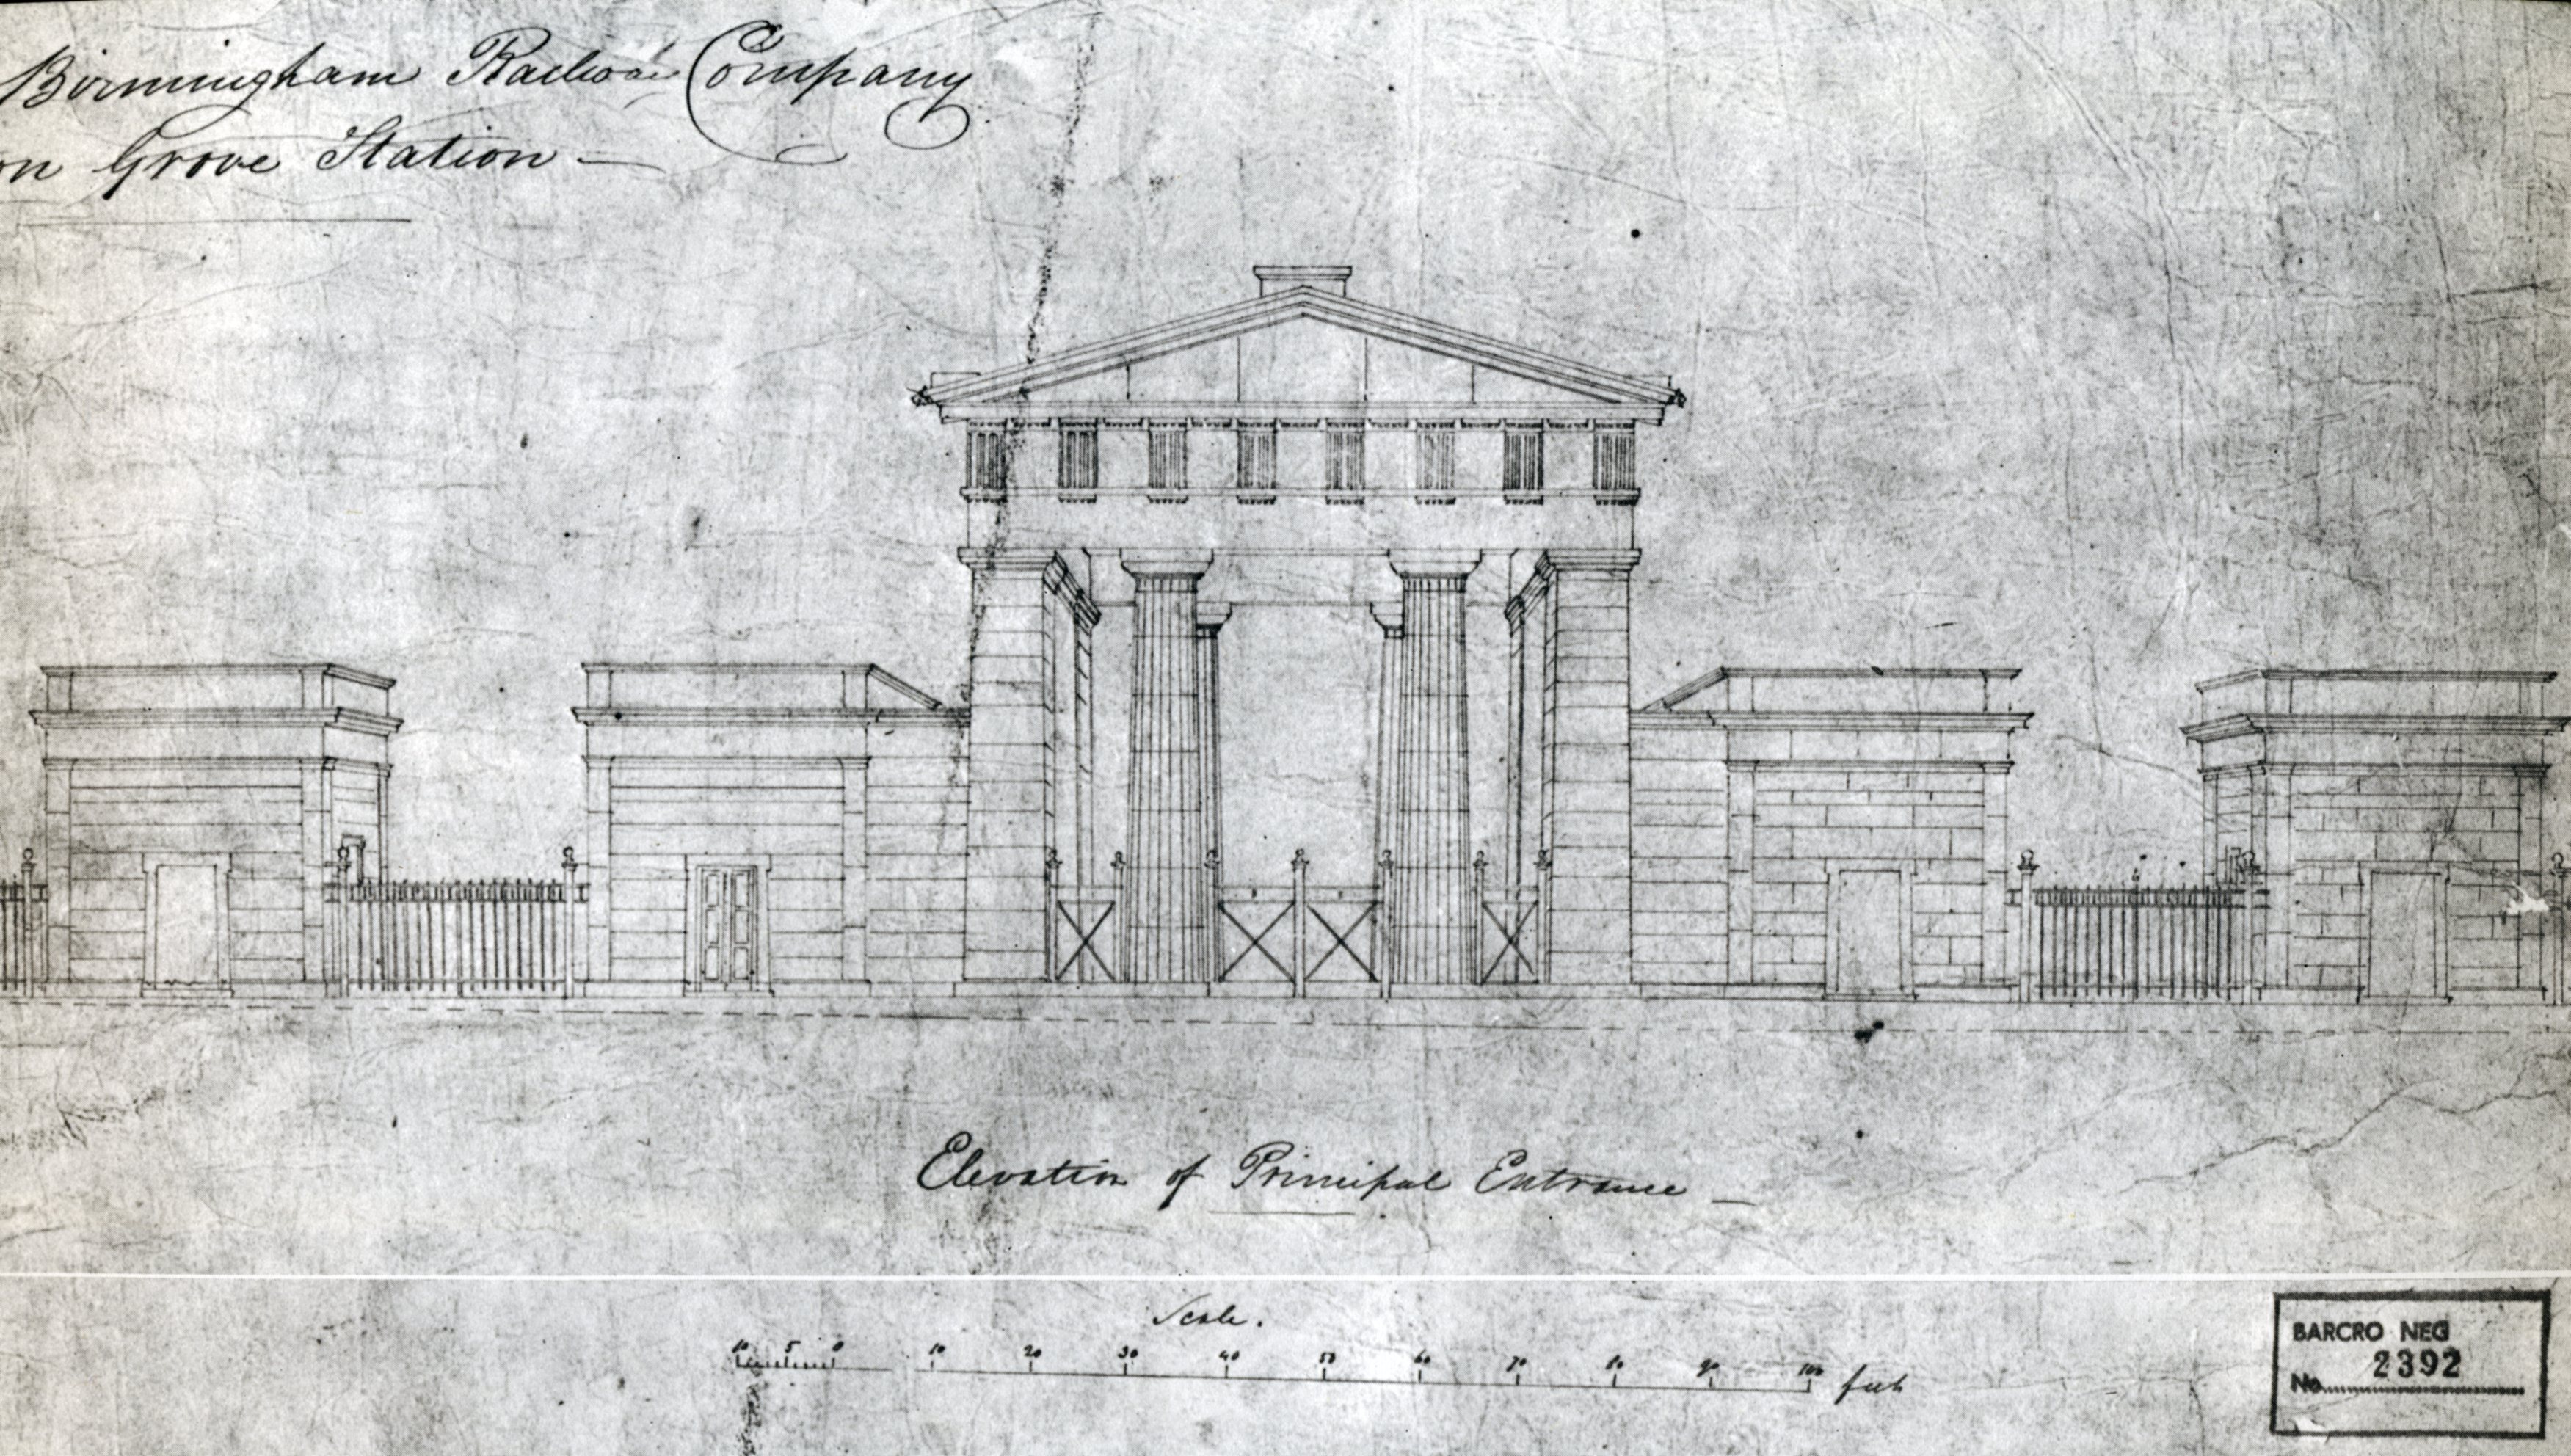 Birmingham Railway Company
on Grove Station
Elevation of Principal Entrance
Scale.
10 5 0 10 20 30 40 50 60 70 80 90 100 feet
BARCRO NEG
No. 2392